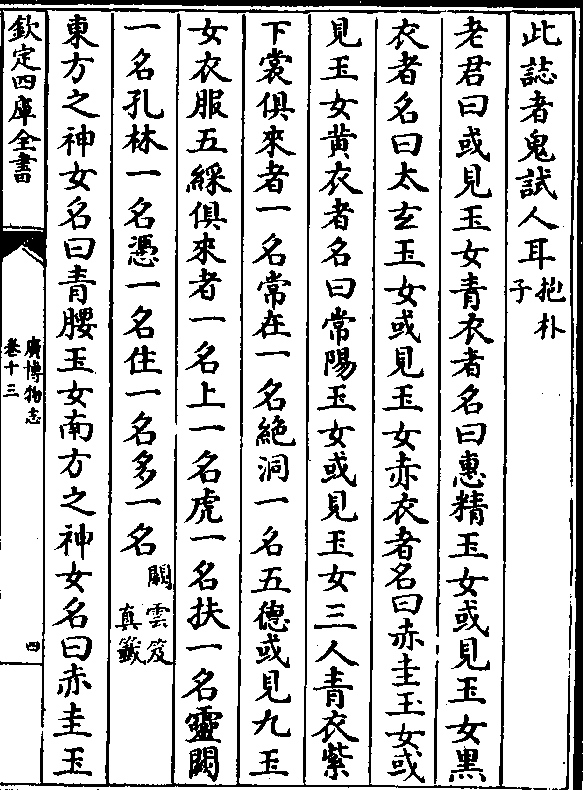 此誌者鬼試人耳抱朴子
老君曰或見玉女青衣者名曰惠精玉女或見玉女黑
衣者名曰太玄玉女或見玉女赤衣者名曰赤圭玉女或
見玉女黄衣者名曰常陽玉女或見玉女三人青衣紫
下裳俱來者一名常在一名絶洞一名五德或見九玉
女衣服五綵俱來者一名上一名虎一名扶一名靈闕
一名孔林一名憑一名住一名多一名闕雲笈真籤
東方之神女名曰青腰玉女南方之神女名曰赤圭玉
欽定四庫全書
廣博物志
卷十三
四